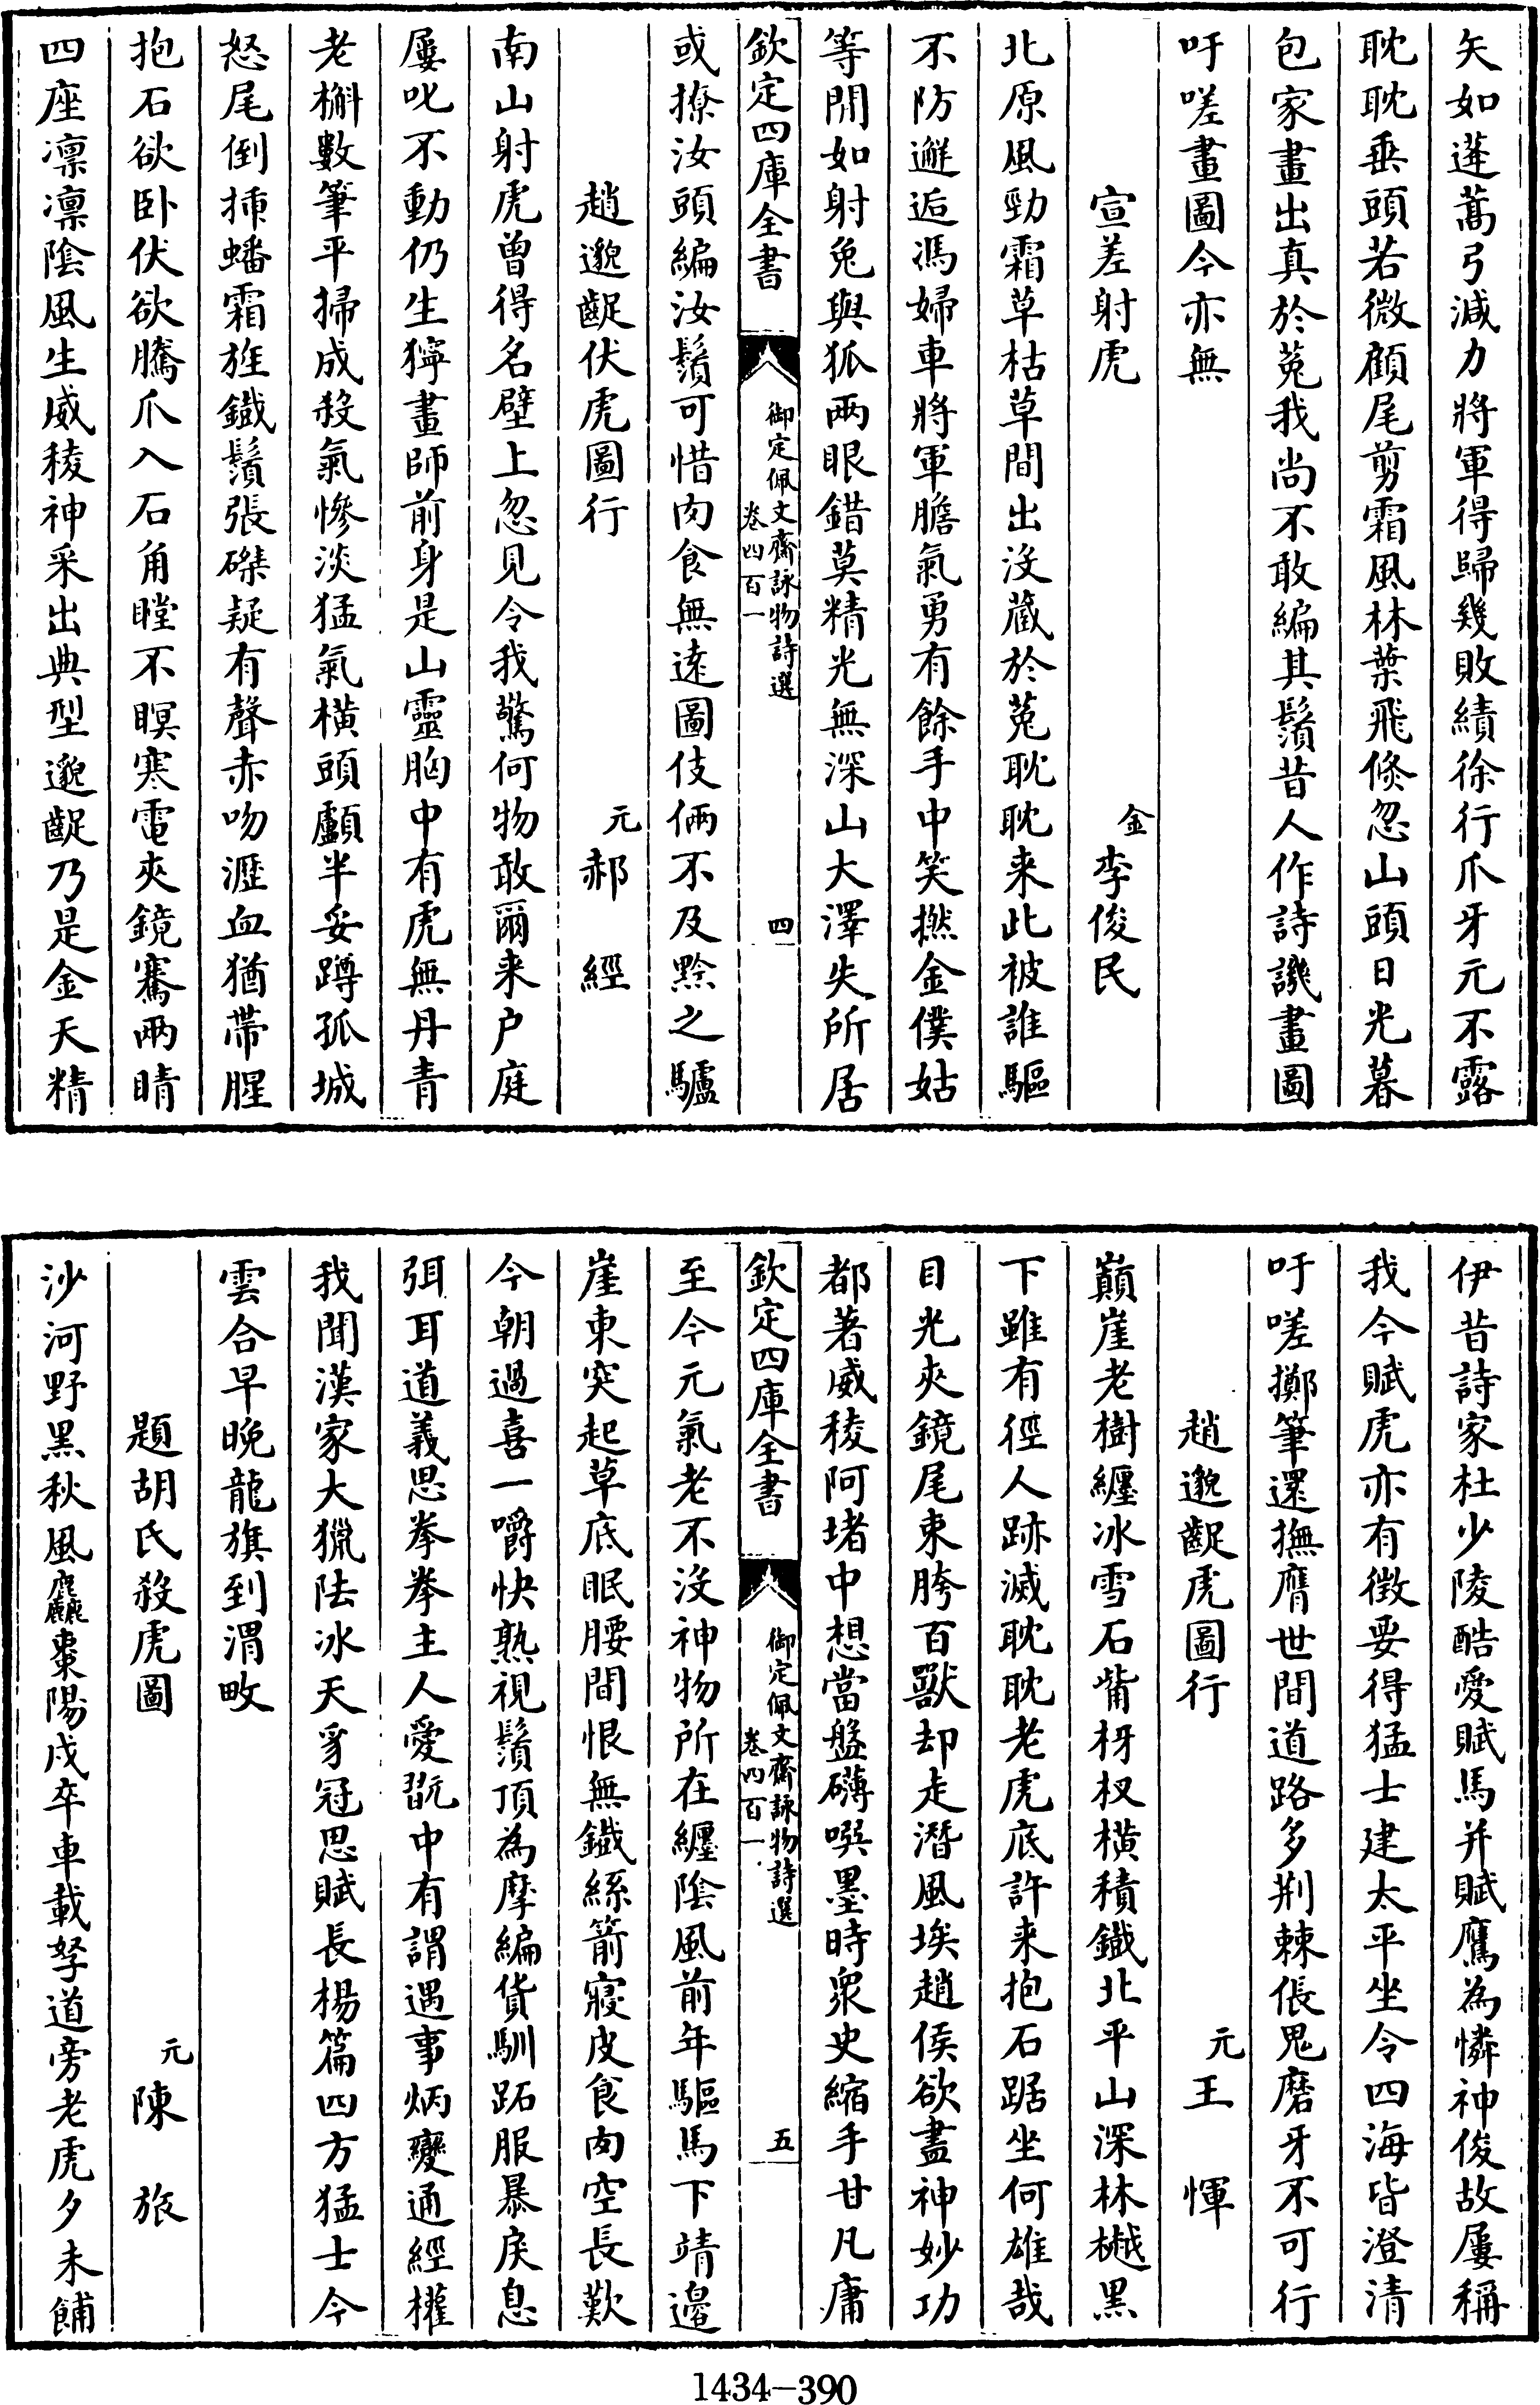 矢如蓬蒿弓減力將軍得歸幾敗績徐行爪牙元不露
耽耽垂頭若微顧尾剪霜風林葉飛倐忽山頭日光暮
包家畫出真於菟我尚不敢編其鬚昔人作詩譏畫圖
吁嗟畫圖今亦無
宣差射虎 金 李俊民
北原風勁霜草枯草間出沒藏於菟耽耽来此被誰驅
不防邂逅馮婦車將軍膽氣勇有餘手中笑撚金僕姑
等閒如射兔與狐兩眼錯莫精光無深山大澤失所居
欽定四庫全書 御定佩文齋詠物詩選 卷四百一 四
或撩汝頭編汝鬚可惜肉食無遠圖伎倆不及黔之驢
趙邈齪伏虎圖行 元 郝經
南山射虎曾得名壁上忽見令我驚何物敢爾来户庭
屢叱不動仍生獰畫師前身是山靈胸中有虎無丹青
老槲數筆平掃成殺氣慘淡猛氣横頭顱半妥蹲孤城
怒尾倒揷蟠霜旌鐵鬚張磔疑有聲赤吻瀝血猶帶腥
抱石欲卧伏欲騰爪入石角瞠不瞑寒電夾鏡騫兩睛
四座凛凛陰風生威稜神采出典型邈齪乃是金天精
伊昔詩家杜少陵酷愛賦馬并賦鷹為憐神俊故屢稱
我今賦虎亦有徵要得猛士建太平坐令四海皆澄清
吁嗟擲筆還撫膺世間道路多荆棘倀鬼磨牙不可行
趙邈齪虎圖行 元 王惲
巔崖老樹纏冰雪石觜枒杈横積鐵北平山深林樾黑
下雖有徑人跡滅耽耽老虎底許来抱石踞坐何雄哉
目光夾鏡尾束胯百獸却走潛風埃趙侯欲盡神妙功
都著威稜阿堵中想當盤礴噀墨時衆史縮手甘凡庸
欽定四庫全書 御定佩文齋詠物詩選 卷四百一 五
至今元氣老不沒神物所在纏陰風前年驅馬下靖邊
崖東突起草底眠腰間恨無鐵絲箭寢皮食肉空長歎
今朝過喜一嚼快熟視鬚頂為摩編貨馴跖服暴戾息
弭耳道義思拳拳主人愛翫中有謂遇事炳變通經權
我聞漢家大獵阹冰天豸冠思賦長楊篇四方猛士今
雲合早晚龍旗到渭畋
題胡氏殺虎圖 元 陳旅
沙河野黑秋風麤棗陽戍卒車載孥道旁老虎夕未餔
1434-390